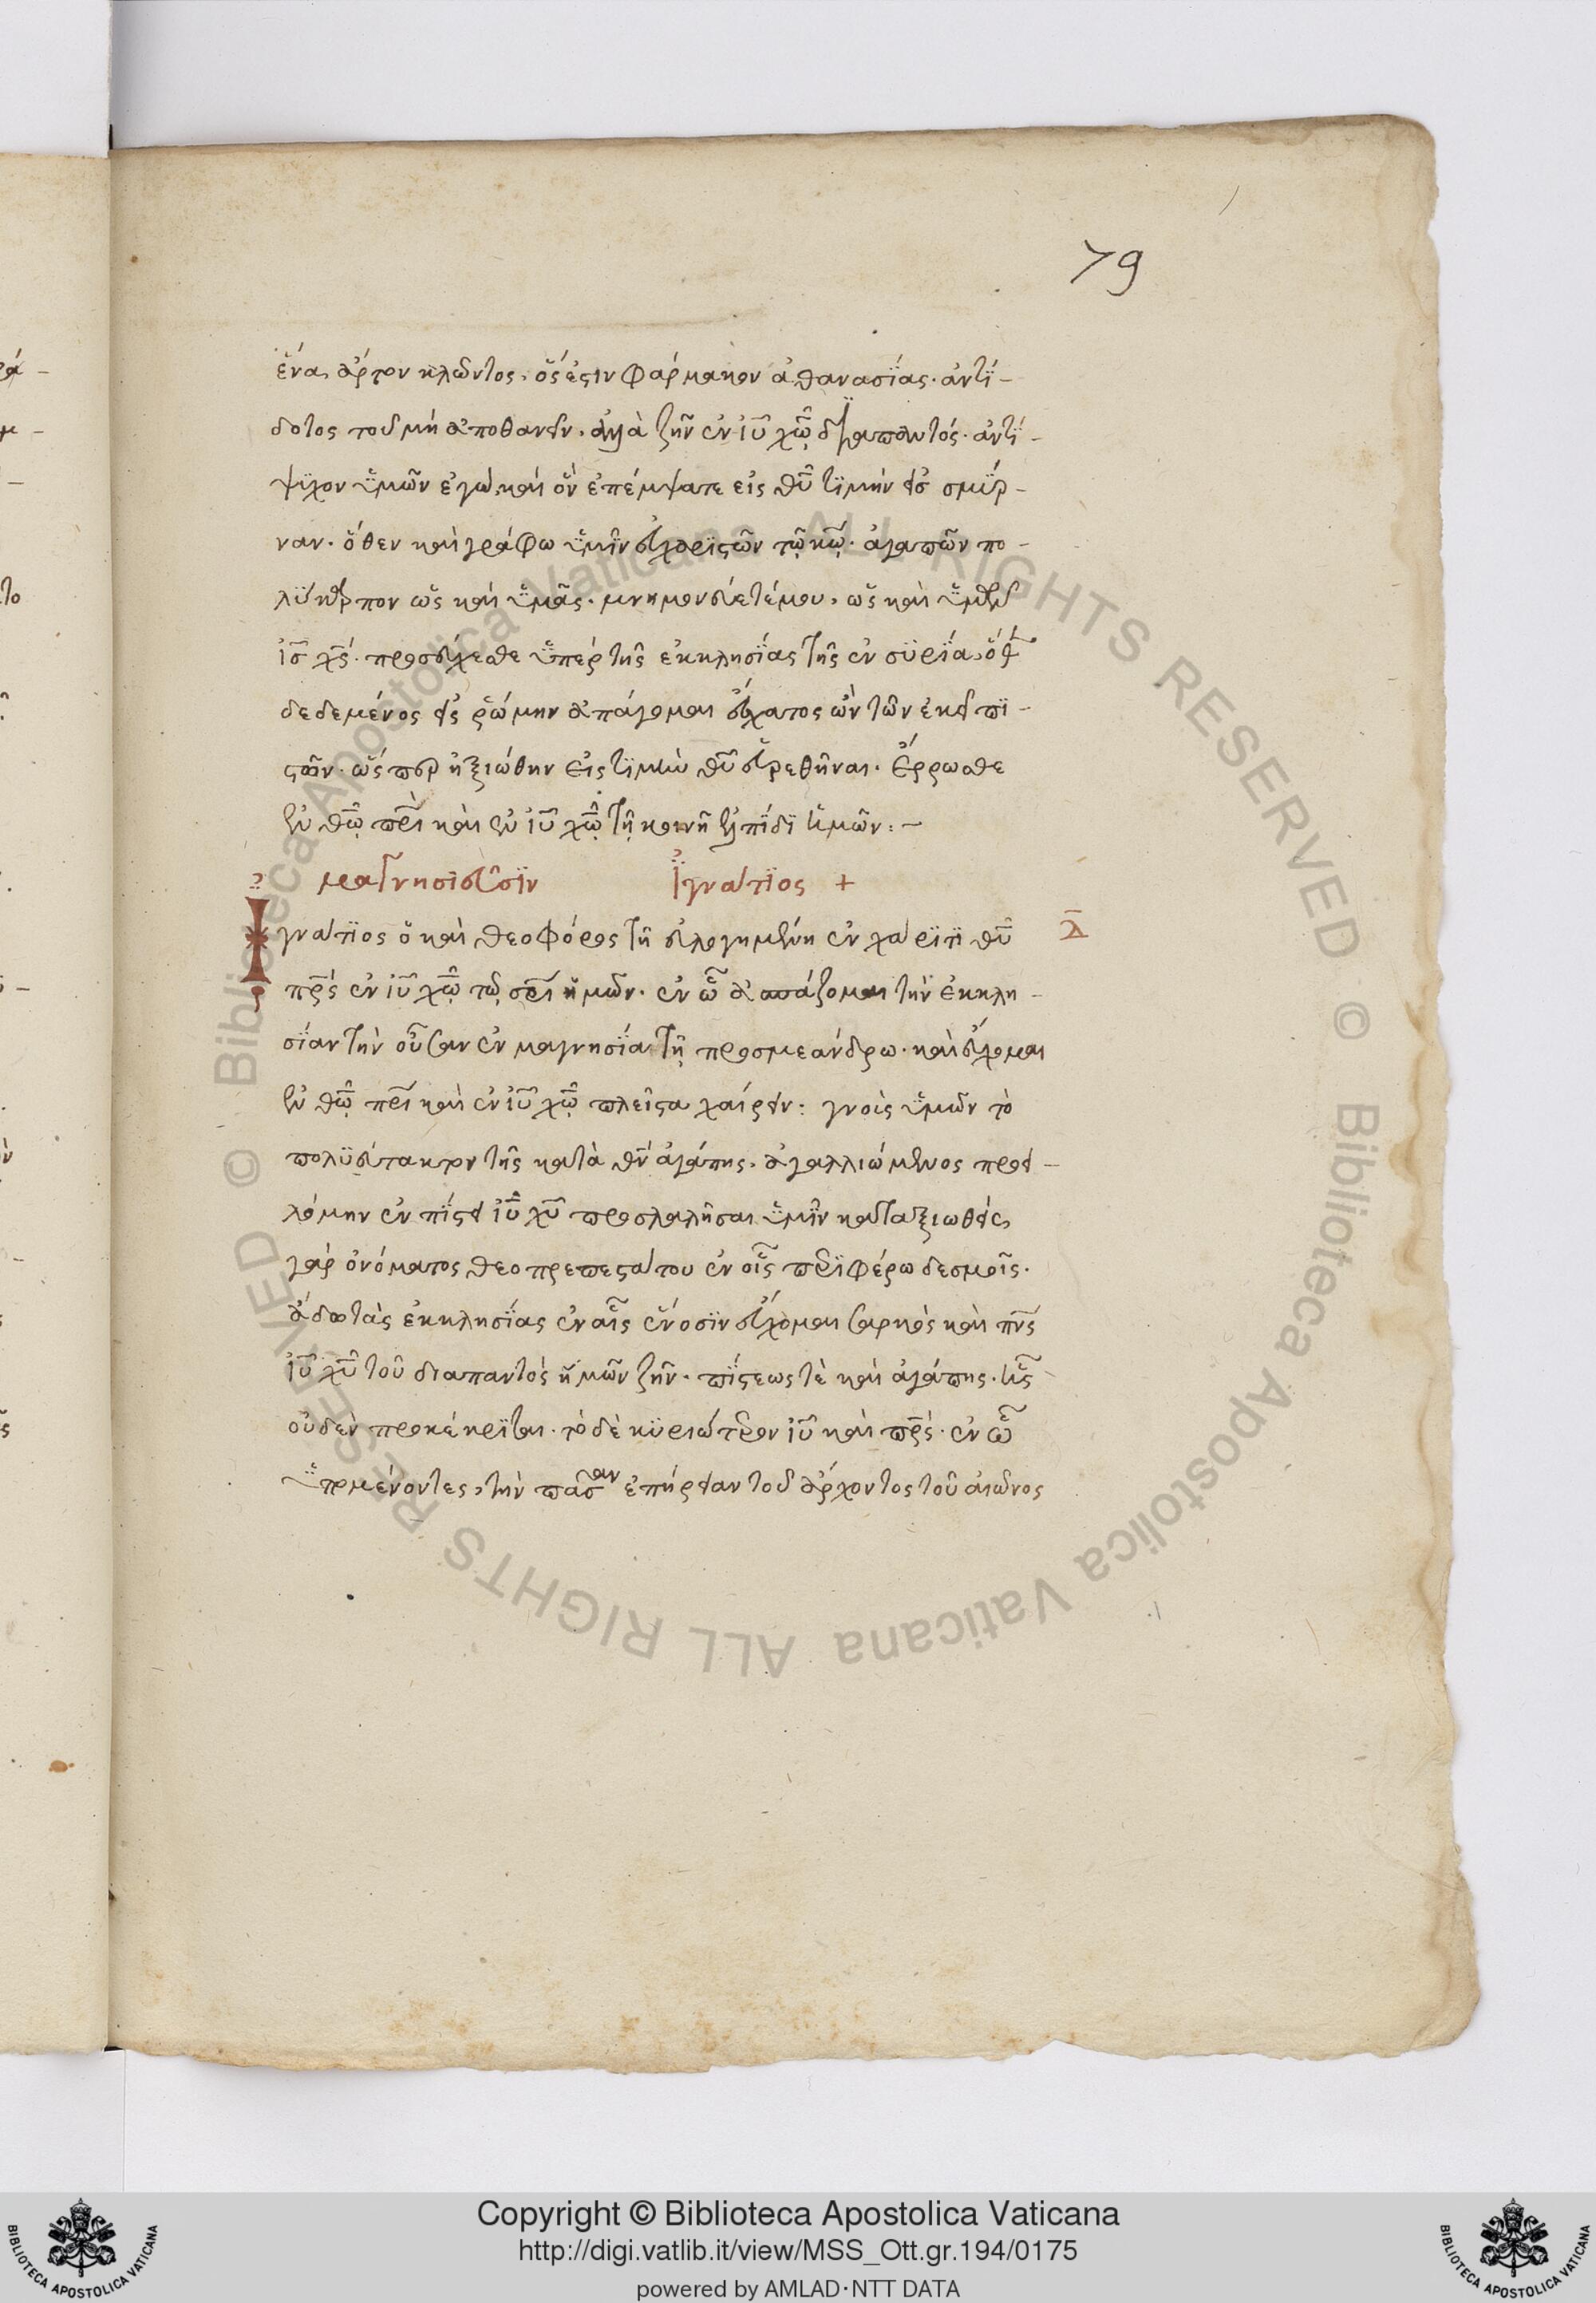 79
ἕνα ἄρτον κλῶντος, ὅς ἐστιν φάρμακον ἀθανασΐας· ἀντΐ-
δοτος τοῦ μὴ ἀποθανεῖν· ἀλλὰ ζῆν ἐν ἰῦ χῶ διαπαντός· ἀντΐ-
ψϋχον ὑμῶν ἐγὼ καὶ ὃν ἐπέμψατε εἰς θῦ τϊμὴν εἰσ σμϋρ-
ναν· ὅθεν καὶ γράφω ὑμῖν εὐχαρϊστῶν τῶ κῶ· ἀγαπῶν πο-
λύκαρπον ὡς καὶ ὑμᾶς· μνημονεύετέ μου, ὡς καὶ ὑμῶν
ἰσ χς· προσεύχεσθε ὑπὲρ τῆς ἐκκλησΐας τῆς ἐν συρΐα, ὅθεν
δεδεμένος εἰς ῥώμην ἀπάγομαι ἔσχατος ὢν τῶν ἐκεῖ πι-
στῶν· ὥσπερ ἠξιώθην εἰς τϊμὴν θῦ εὑρεθῆναι· ἔρρωσθε
ἐν θῶ πρι καὶ ἐν ἰῦ χῶ τῆ κοινῆ ἐλπΐδϊ ἡμῶν:-
μαγνησιεῦσϊν ἰγνάτϊος +
Ιγνάτϊος ὁ καὶ θεοφόρος τῆ εὐλογημένη ἐν χάρϊτϊ θῦ
λ
πρς ἐν ἰῦ χῶ τῶ σρι ἡμῶν· ἐν ὧ ἀσπάζομαι τὴν ἐκκλη-
σΐαν τὴν οὖσαν ἐν μαγνησΐα τῆ προσμεάνδρω· καὶ εὔχομαι
ἐν θῶ πρι καὶ ἐν ἰῦ χῶ πλεῖστα χαίρειν: γνοὺς ὑμῶν τὸ
πολϋεύτακτον τῆς κατὰ θν ἀγάπης, ἀγαλλιώμενος προει-
λόμην ἐν πΐστει ἰῦ χῦ προσλαλῆσαι ὑμῖν καταξιωθεὶς
γὰρ ὀνόματος θεοπρεπεστάτου ἐν οἷς περϊφέρω δεσμοῖς·
ἄδω τὰς ἐκκλησΐας ἐν αἷς ἕνοσϊν εὔχομαι σαρκὸς καὶ πνς
ἰῦ χῦ τοῦ διαπαντὸς ἡμῶν ζῆν· πΐστεως τὲ καὶ ἀγάπης· ἧς
οὐδὲν προκέκρϊται· τὸ δὲ κϋριώτερον ἰῦ καὶ πρς· ἐν ὧ
ὑπομένοντες, τὴν πᾶσαν ἐπήρειαν τοῦ ἄρχοντος τοῦ αἰῶνος
© Biblioteca Apostolica Vaticana ALL RIGHTS RESERVED © Biblioteca Apostolica Vaticana ALL RIGHTS RESERVED
BIBLIOTECA APOSTOLICA VATICANA
Copyright © Biblioteca Apostolica Vaticana
http://digi.vatlib.it/view/MSS_Ott.gr.194/0175
powered by AMLAD·NTT DATA
BIBLIOTECA APOSTOLICA VATICANA